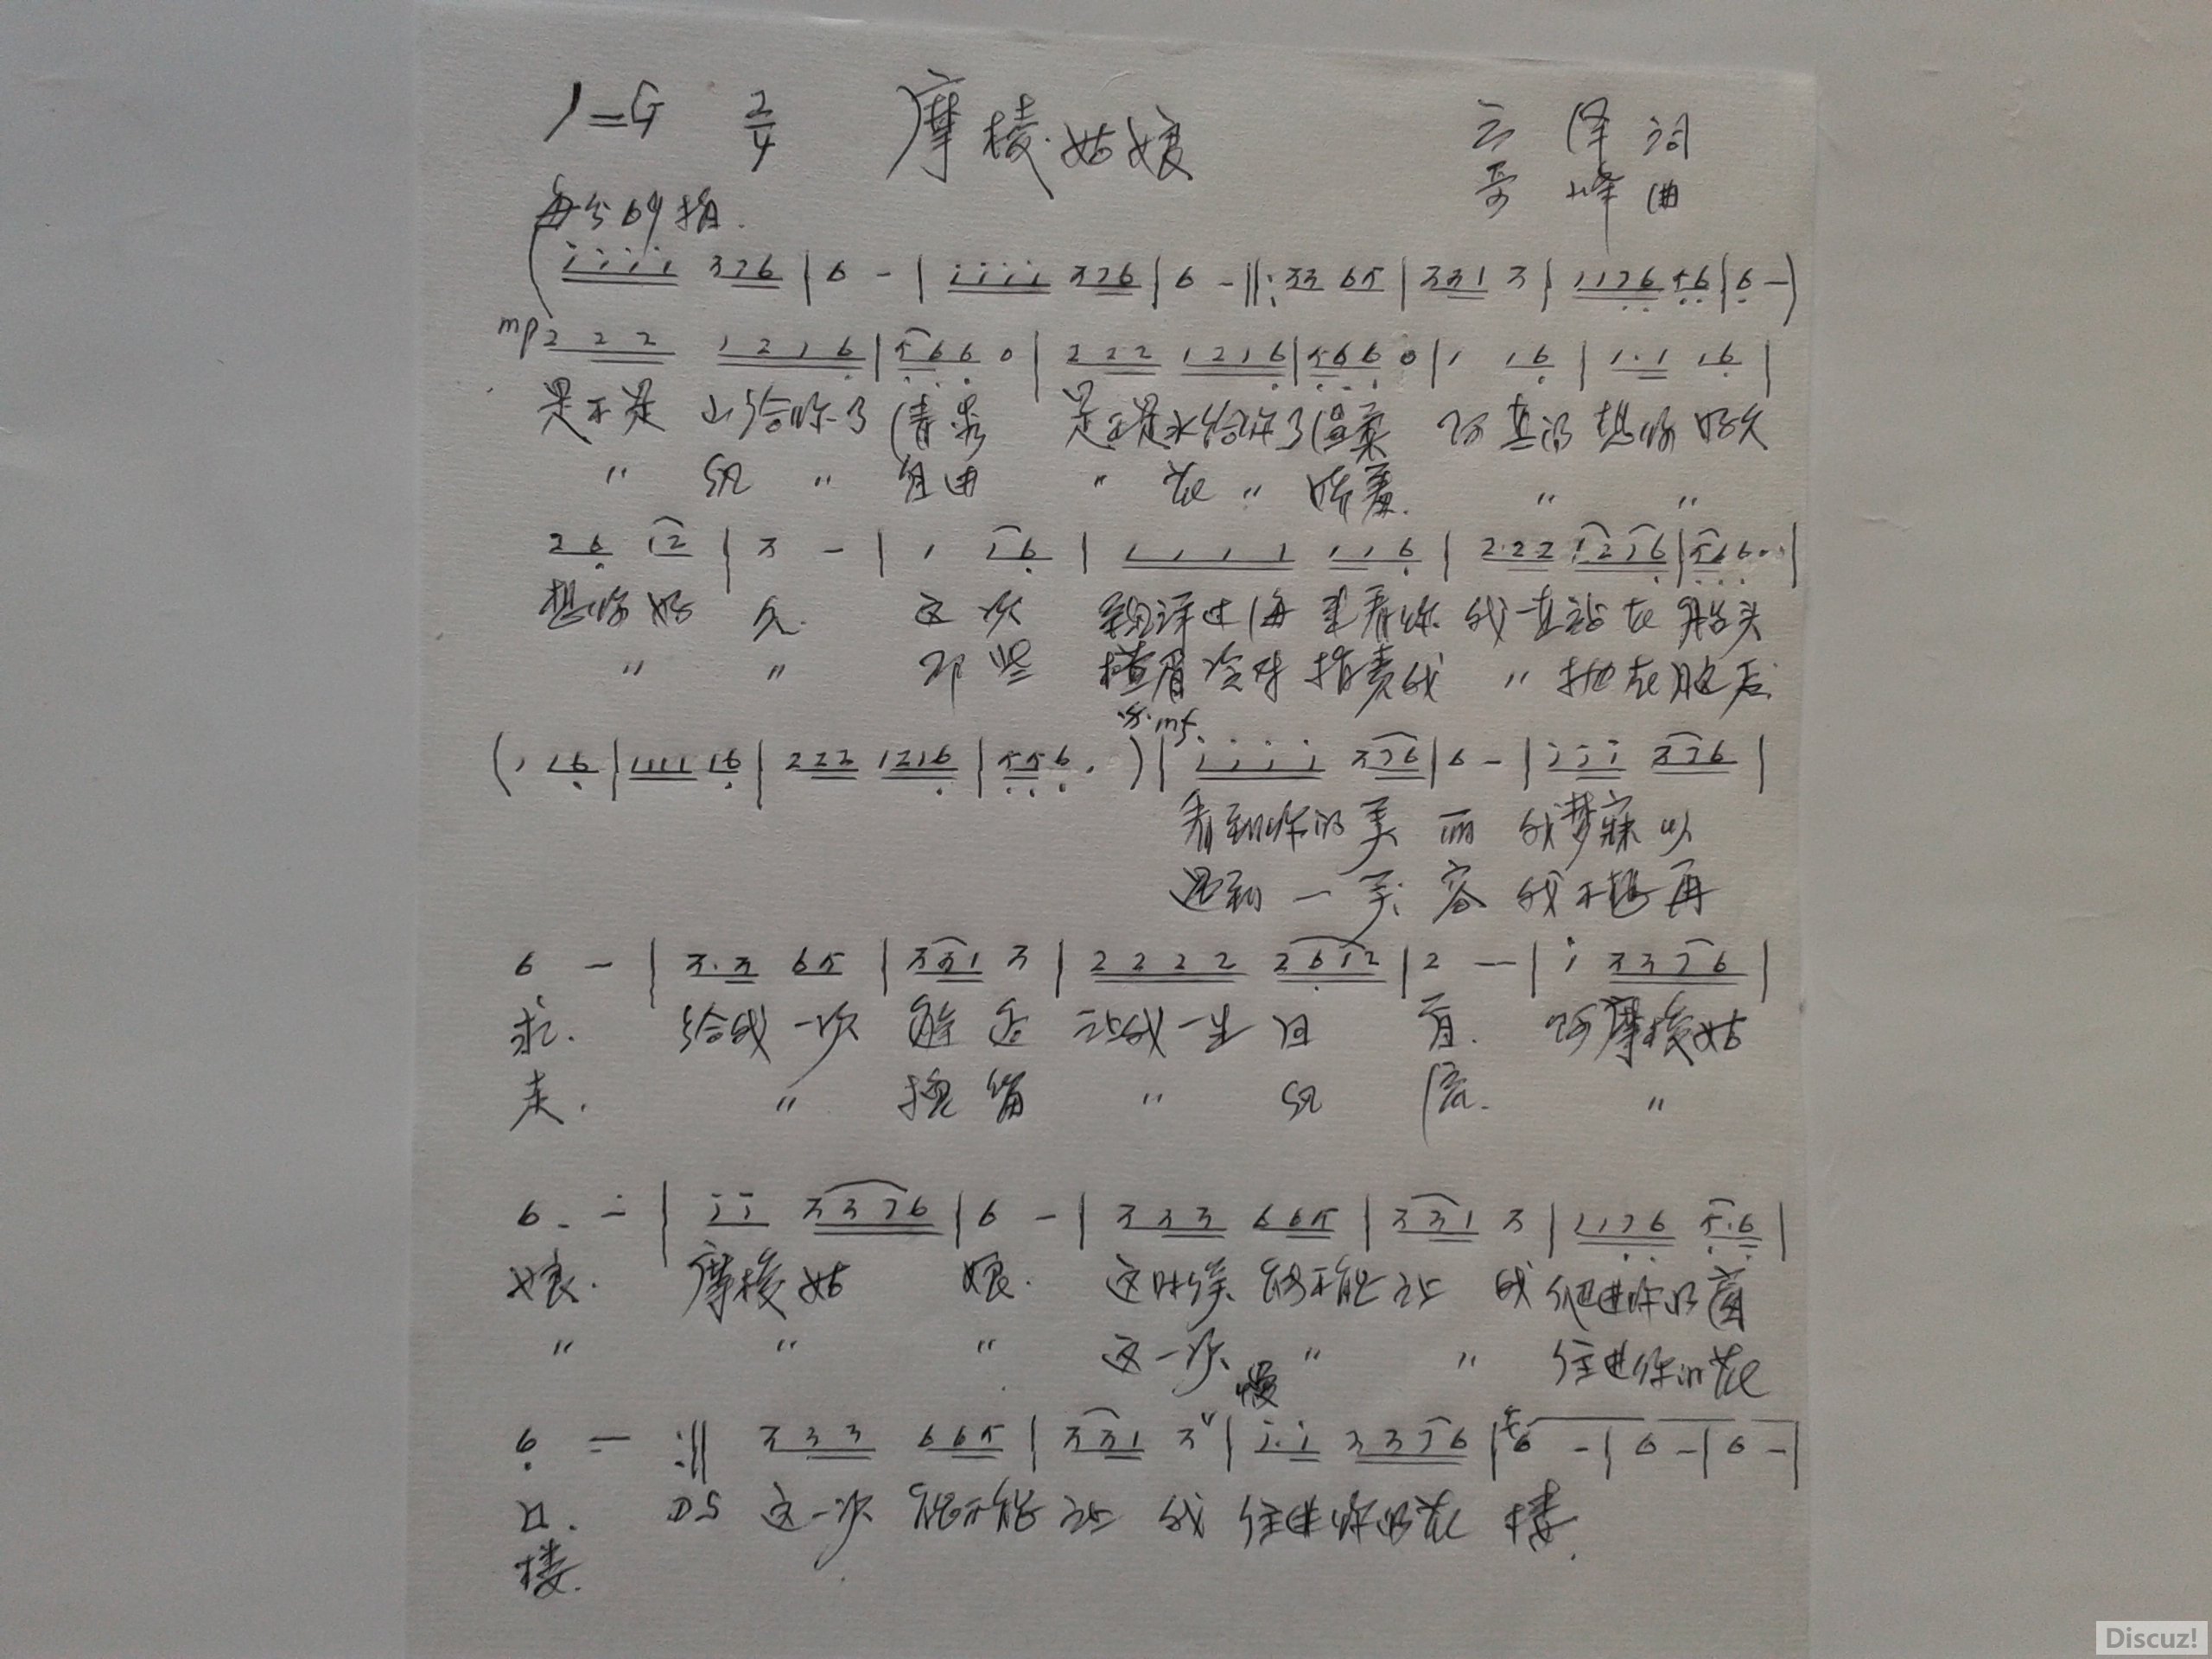 1=G 2/4 摩梭姑娘 云泽词
峰曲
每分64拍.
(i i i i 3 7 6 | 6 - | i i i i 3 7 6 | 6 - ‖: 3 3 6 5 | 3 3 1 3 | 1 1 7 6 5 6 | 6 - )
mp 2 2 2 1 2 1 6 | 5 6 6 0 | 2 2 2 1 2 1 6 | 5 6 6 0 | 1 1 6 | 1 . 1 1 6 |
是不是 山给你了清秀 是不是水给你了温柔 阿 真的想你好久
" 风 " 自由 " 花 " 娇羞. " "
2 6 1 2 | 3 - | 1 1 6 | 1 1 1 1 1 1 6 | 2 . 2 2 1 2 1 6 | 5 6 6 . |
想你好 久. 这次 漂洋过海来看你 我一直站在船头
" " 那些 横眉冷对指责我 " 抛在脑后
mf
( 1 1 6 | 1 1 1 1 1 6 | 2 2 2 1 2 1 6 | 5 5 6 . ) | i i i i 3 7 6 | 6 - | i i i 3 7 6 |
看到你的美 丽 我梦寐以
遇到一 容 我不想再
6 - | 3 . 3 6 5 | 3 3 1 3 | 2 2 2 2 2 6 1 2 | 2 - | i 3 3 7 6 |
求. 给我一次邂逅 让我一生回 首. 阿摩梭姑
走. " 挽留 " 风 流. "
6 . - | i i 3 3 7 6 | 6 - | 3 3 3 6 6 5 | 3 3 1 3 | 1 1 7 6 5 . 6 |
娘. 摩梭姑 娘. 这时候能不能让 我 进你的窗
" " " 这一次 " " 住进你的花
慢
6 - :‖ 3 3 3 6 6 5 | 3 3 1 3 | i . i 3 3 7 6 | 6 - | 6 - | 6 - |
口. DS 这一次 能不能让 我 住进你的花 楼.
楼.
Discuz!